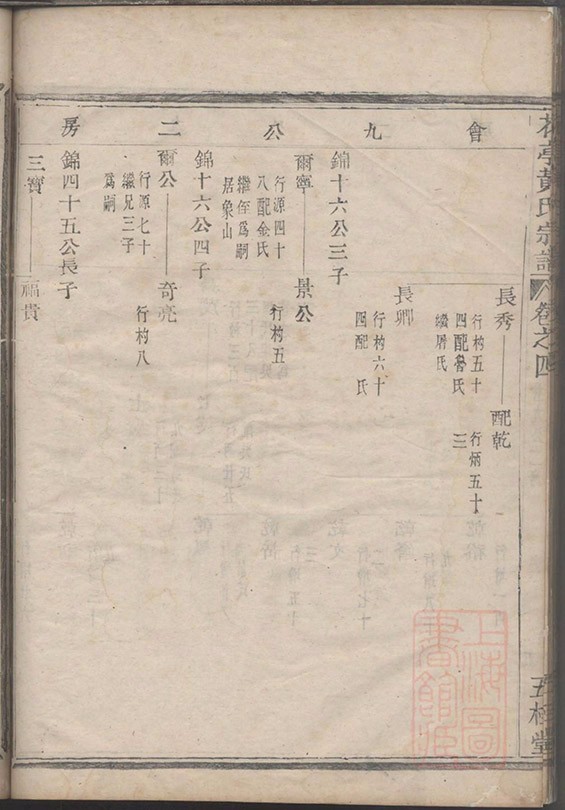 花亭黃氏宗譜 卷之四
會九公二房
長秀 配乾
行杓五十
四配魯氏
繼屠氏
行炳五十
三
長卿
行杓六十
四配 氏
錦十六公三子
爾寧 景公
行源四十
八配金氏
繼侄爲嗣
居象山
行杓五
錦十六公四子
爾公 奇亮
行源七十
繼兄三子
爲嗣
行杓八
錦四十五公長子
三寶 福貴
上海圖書館藏